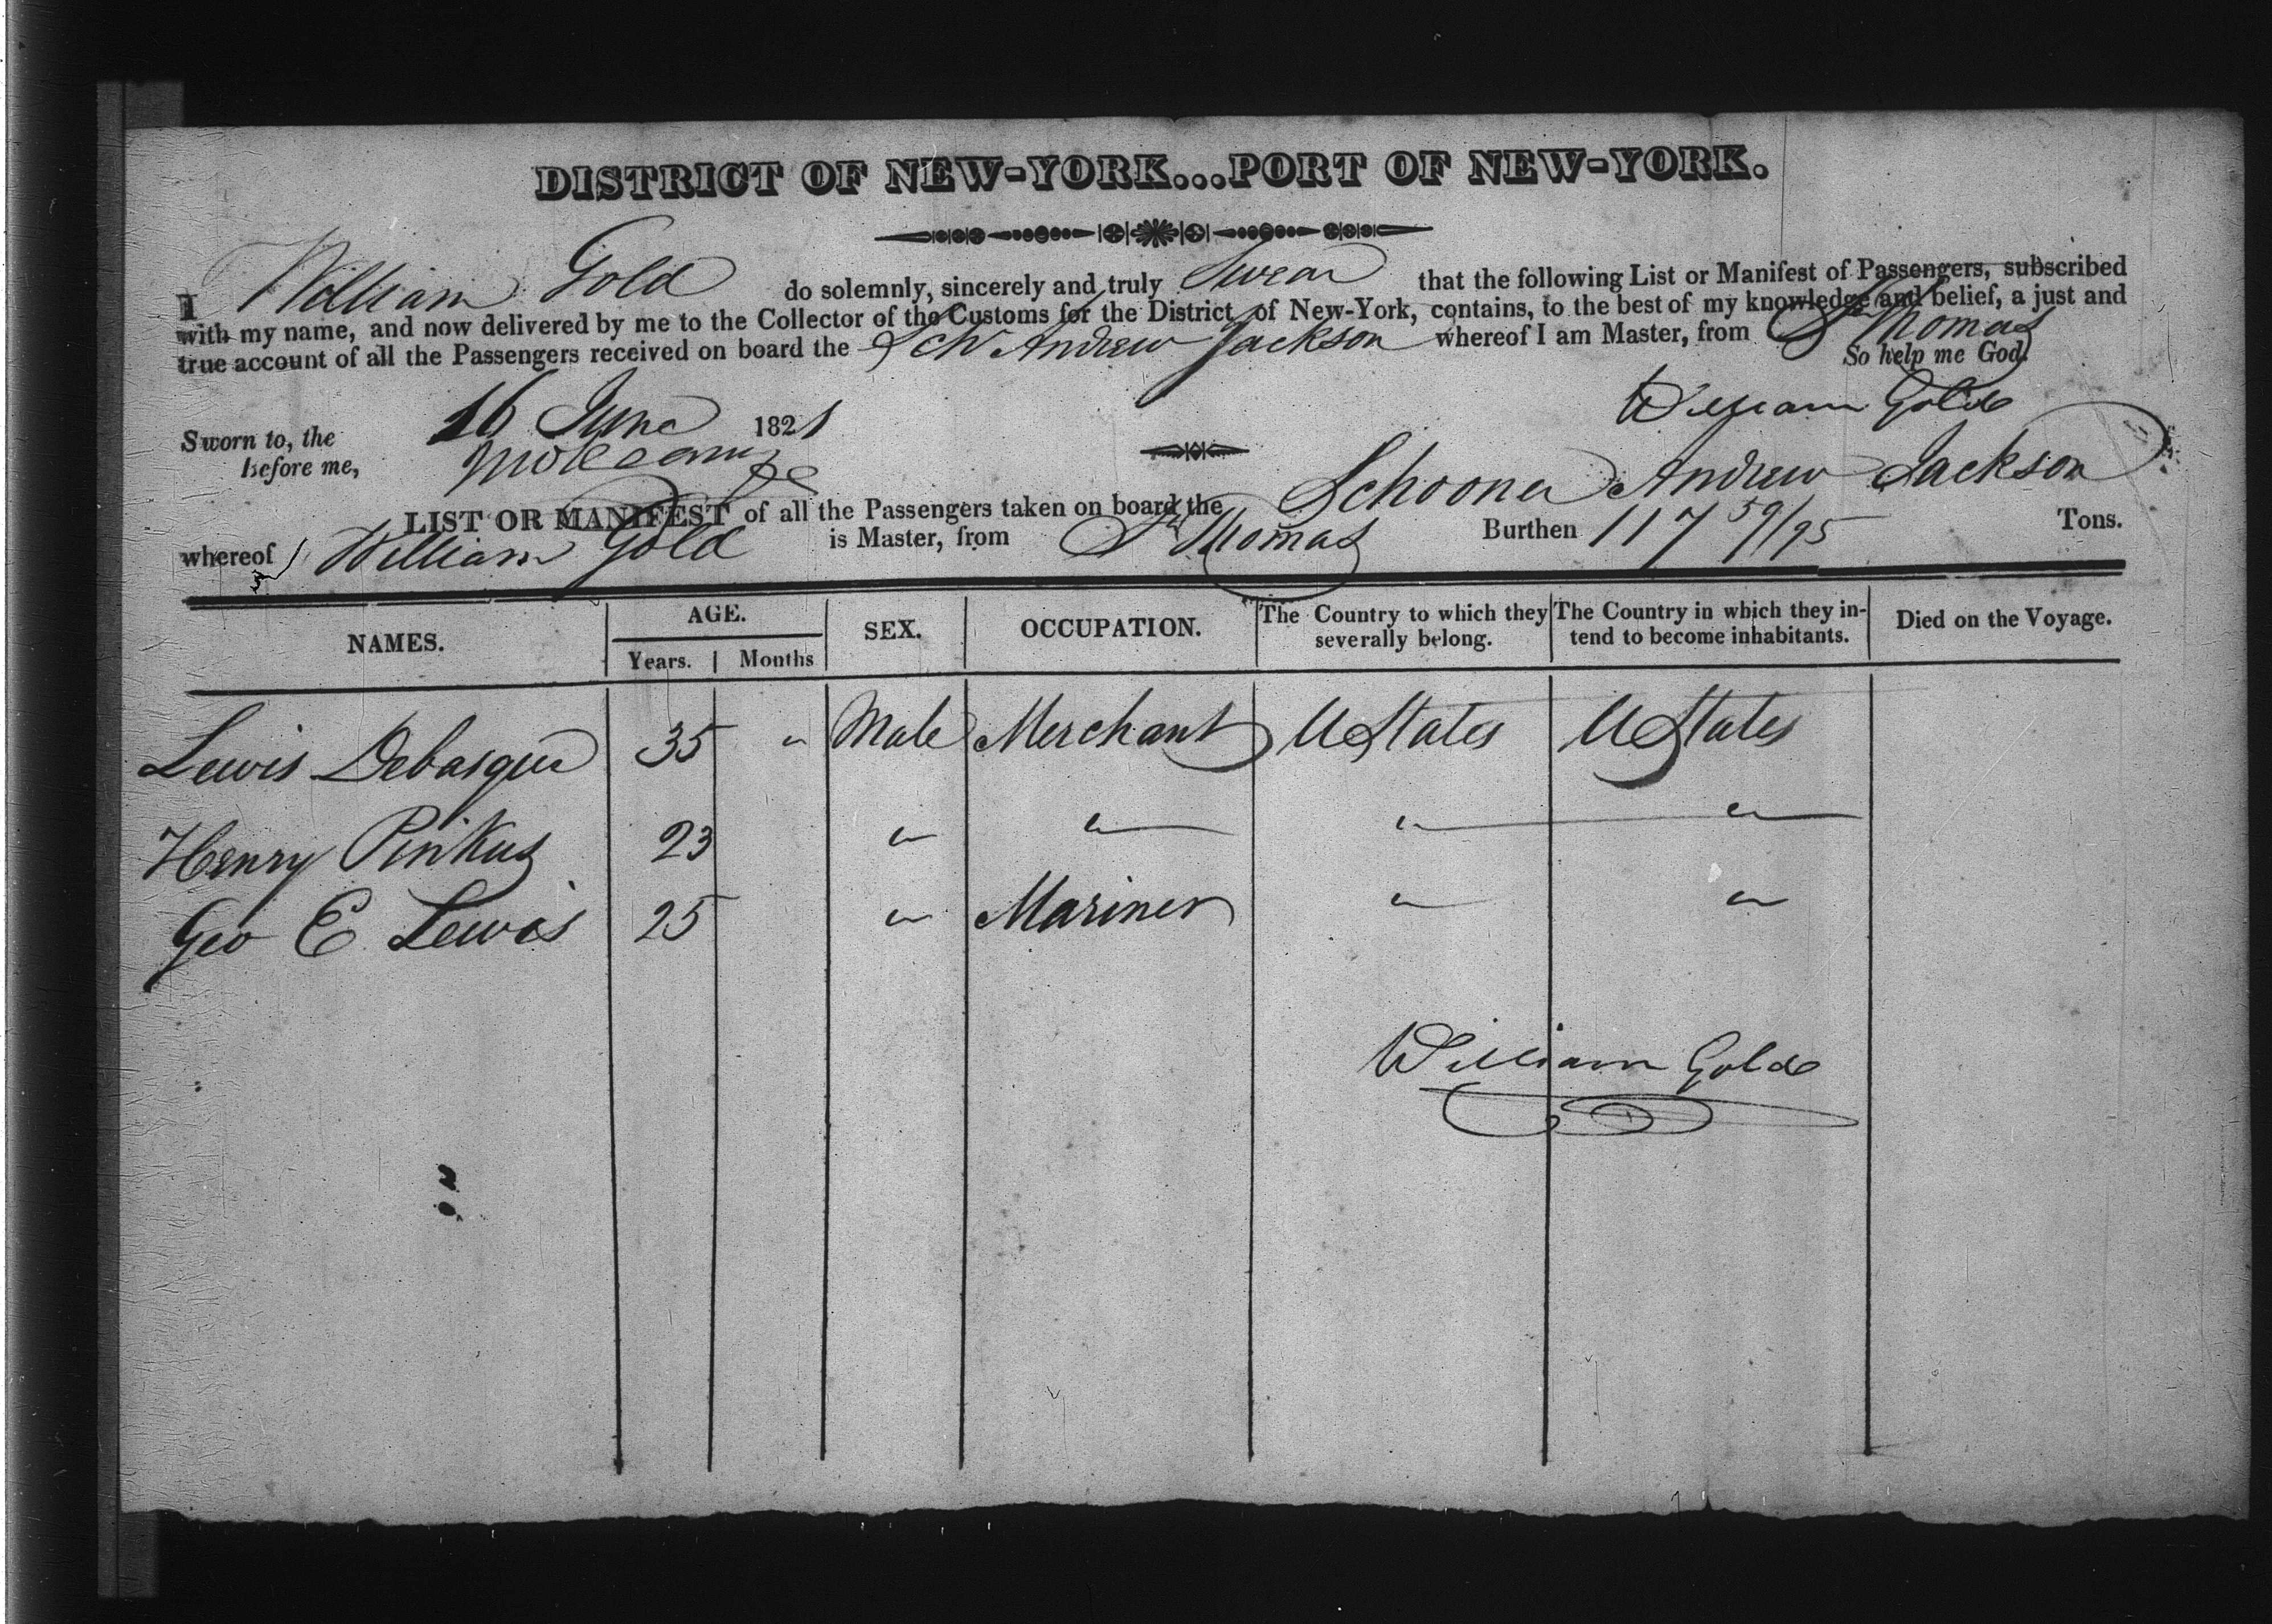 DISTRICT OF NEW-YORK...PORT OF NEW-YORK.
I William Gold do solemnly, sincerely and truly Swear that the following List or Manifest of Passengers, subscribed
with my name, and now delivered by me to the Collector of the Customs for the District of New-York, contains, to the best of my knowledge and belief, a just and
true account of all the Passengers received on board the Schr Andrew Jackson whereof I am Master, from St Thomas
So help me God.
William Gold
Sworn to, the 16 June 1821
before me,
LIST OR MANIFEST of all the Passengers taken on board the Schooner Andrew Jackson
whereof William Gold is Master, from St Thomas Burthen 117 59/95 Tons.
NAMES. AGE. SEX. OCCUPATION. The Country to which they severally belong. The Country in which they intend to become inhabitants. Died on the Voyage.
Years. Months
Lewis Debasque 35 " Male Merchant UStates UStates
Henry Pinkus 23 " " " "
Geo E Lewis 25 " Mariner " "
William Gold